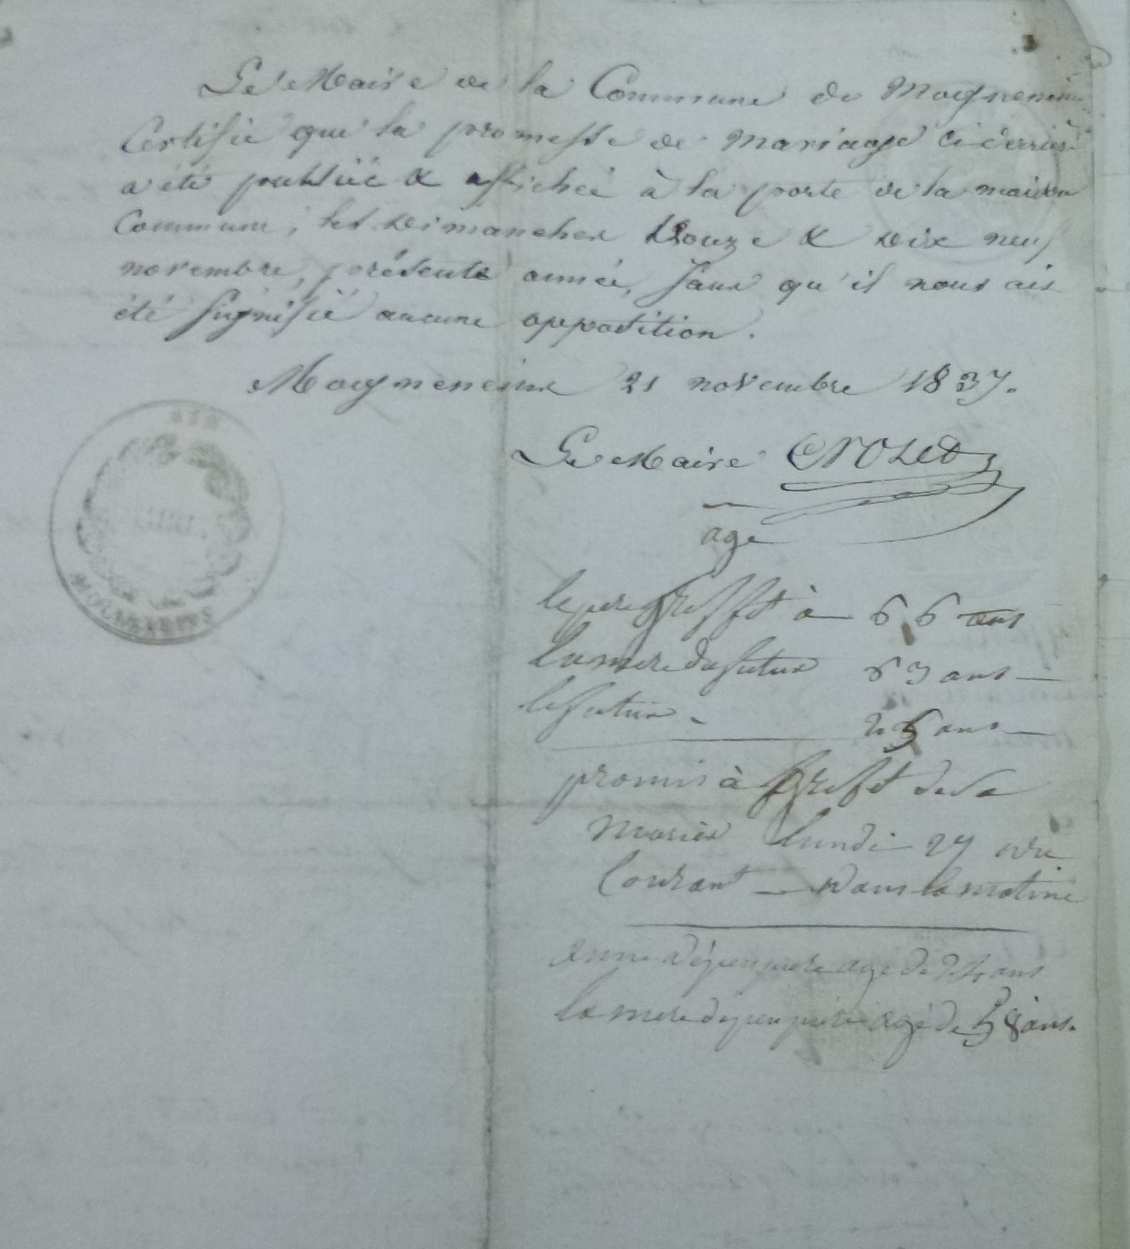 Le Maire de la Commune de Mogneneins
Certifie que la promesse de mariage ci derrière
a été publiée & affichée à la porte de la maison
Commune, les dimanches Douze & dix neuf
novembre, présente année, sans qu'il nous ait
été signifié aucune opposition.
Mogneneins 21 novembre 1837.
Le Maire Crozet
age
le pere greffet à 66 ans
la mere du futur 63 ans
le futur 25 ans
promis à greffet de la
marier lundi 27 9bre
Courant dans la matiné
AIN
MOGNENEINS
age de ans
la mere agé de 58 ans.